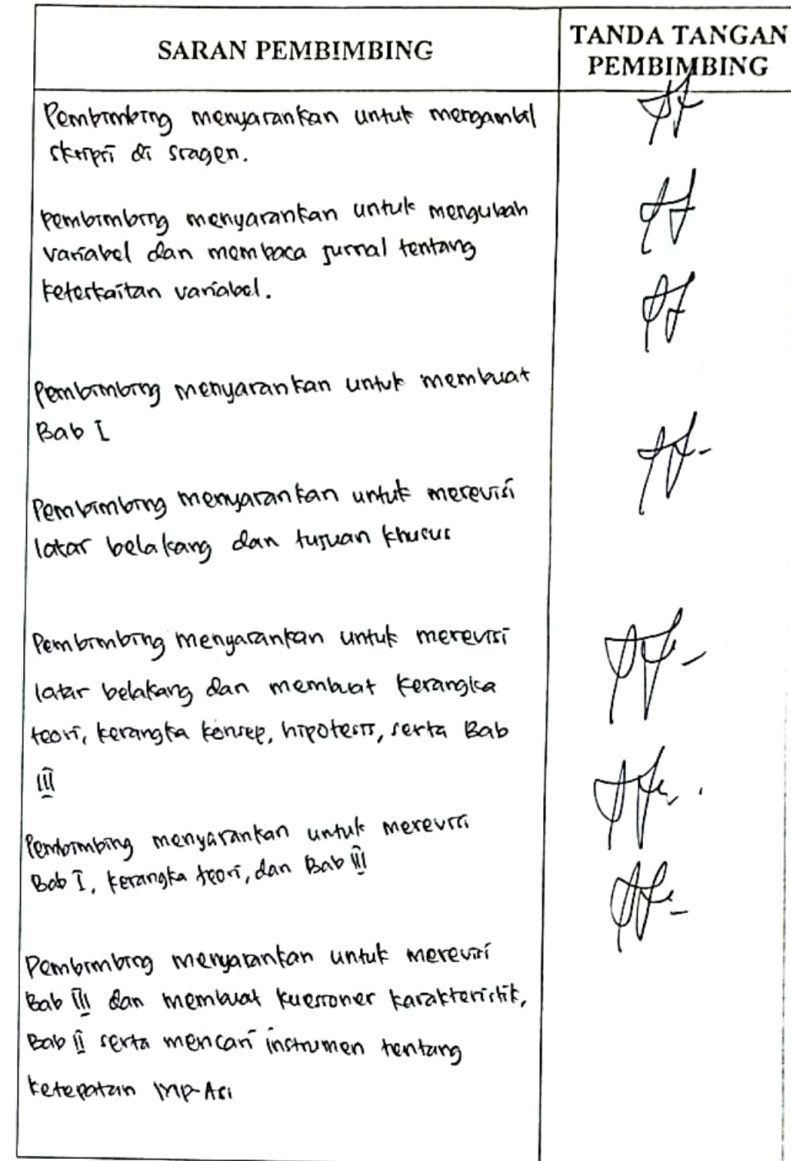 SARAN PEMBIMBING
TANDA TANGAN
PEMBIMBING
Pembimbing menyarankan untuk mengambil
skripsi di sragen.
Pembimbing menyarankan untuk mengubah
variabel dan membaca jurnal tentang
keterkaitan variabel.
Pembimbing menyarankan untuk membuat
Bab I
Pembimbing menyarankan untuk merevisi
latar belakang dan tujuan khusus
Pembimbing menyarankan untuk merevisi
latar belakang dan membuat kerangka
teori, kerangka konsep, hipotesis, serta Bab
III
Pembimbing menyarankan untuk merevisi
Bab I, kerangka teori, dan Bab III
Pembimbing menyarankan untuk merevisi
Bab III dan membuat kuesioner karakteristik,
Bab II serta mencari instrumen tentang
ketepatan MP-Asi